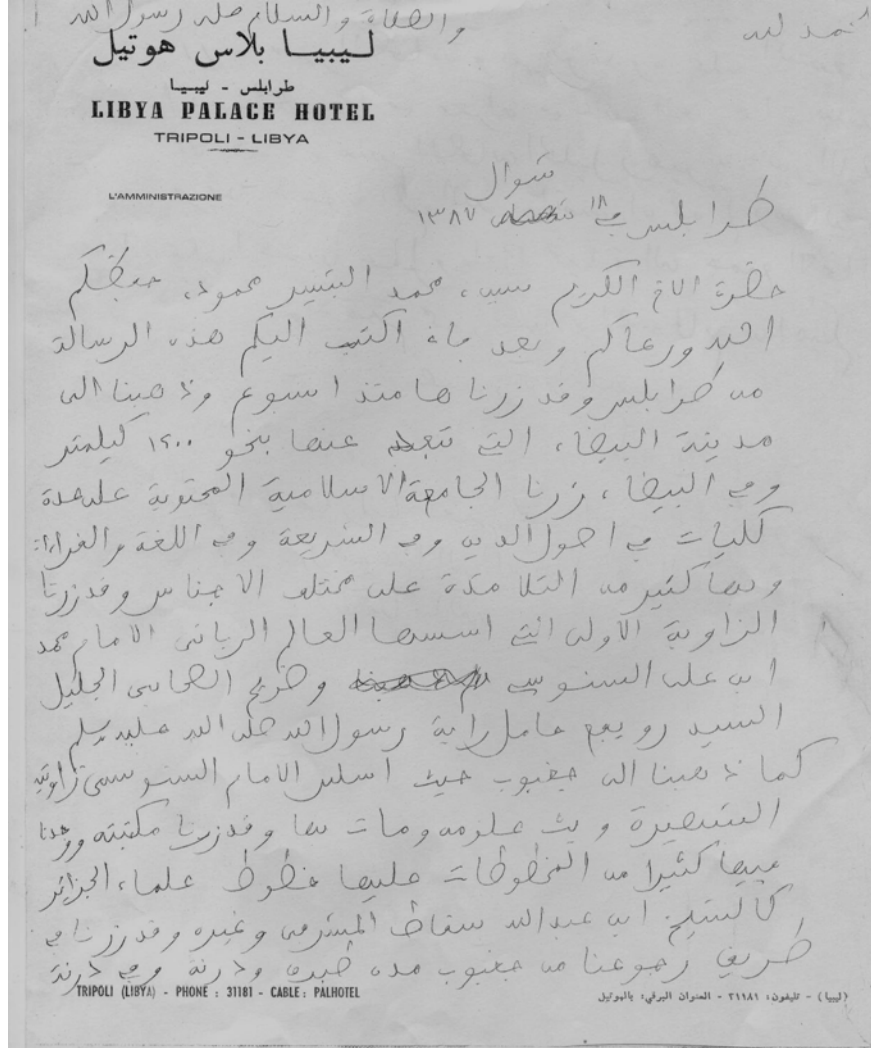 الحمد لله والصلاة والسلام على رسول الله
ليبيا بلاس هوتيل
طرابلس - ليبيا
LIBYA PALACE HOTEL
TRIPOLI - LIBYA
L'AMMINISTRAZIONE
شوال
طرابلس في ١٨ ١٣٨٧
حضرة الاخ الكريم سيد محمد البشير محمود، حفظكم
الله ورعاكم وبعد فاني اكتب اليكم هذه الرسالة
من طرابلس وقد زرناها منذ اسبوع وذهبنا الى
مدينة البيضاء التي تبعد عنها بنحو ١٢٠٠ كيلمتر
وفي البيضاء زرنا الجامعة الاسلامية المحتوية على عدة
كليات في اصول الدين وفي الشريعة وفي اللغة والقراءات
وبها كثير من التلامذة على مختلف الاجناس وقد زرنا
الزاوية الاولى التي اسسها العالم الرباني الامام محمد
ابن على السنوسي وضريح الصحابي الجليل
السيد رويفع حامل راية رسول الله صلى الله عليه وسلم
كما ذهبنا الى جغبوب حيث اسس الامام السنوسي زاويته
الشهيرة وبث علومه ومات بها وقد زرنا مكتبته ووجدنا
فيها كثيرا من المخطوطات عليها خطوط علماء الجزائر
كالشيخ ابن عبد الله سقاط المشرفي وغيره وقد زرنا في
طريق رجوعنا من جغبوب مدن طبرق ودرنة وفي درنة
TRIPOLI (LIBYA) - PHONE : 31181 - CABLE : PALHOTEL
(ليبيا) - تليفون: ٣١١٨١ - العنوان البرقي: بالهوتيل